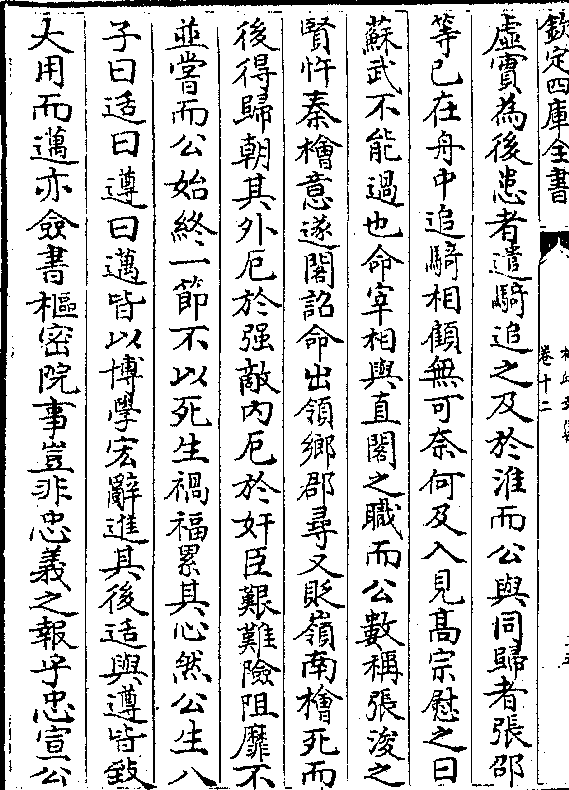 欽定四庫全書
卷十二
虛實為後患者遣騎追之及於淮而公與同歸者張邵
等已在舟中追騎相顧無可奈何及入見高宗慰之曰
蘇武不能過也命宰相與直閣之職而公數稱張浚之
賢忤秦檜意遂閣詔命出領鄉郡尋又貶嶺南檜死而
後得歸朝其外厄於强敵内厄於奸臣艱難險阻靡不
並嘗而公始終一節不以死生禍福累其心然公生八
子曰适曰遵曰邁皆以博學宏辭進其後适與遵皆致
大用而邁亦僉書樞密院事豈非忠義之報乎忠宣公